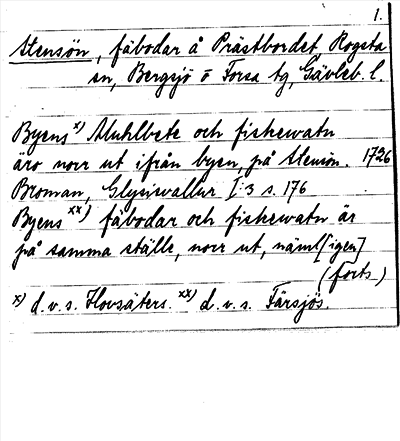 1.
Stensön, fäbodar å Prästbordet Rogsta
sn, Bergsjö o Forsa tg, Gävleb. l.
Byens x) Muhlbete och fiskewatn
äro norr ut ifrån byen, på Stensön. 1726
Broman, Glysisvallur I:3 s. 176
Byens xx) fäbodar och fiskewatn är
på samma ställe, norr ut, näml[igen]
(forts.)
x) d.v.s. Hovsäters. xx) d.v.s. Färsjös.